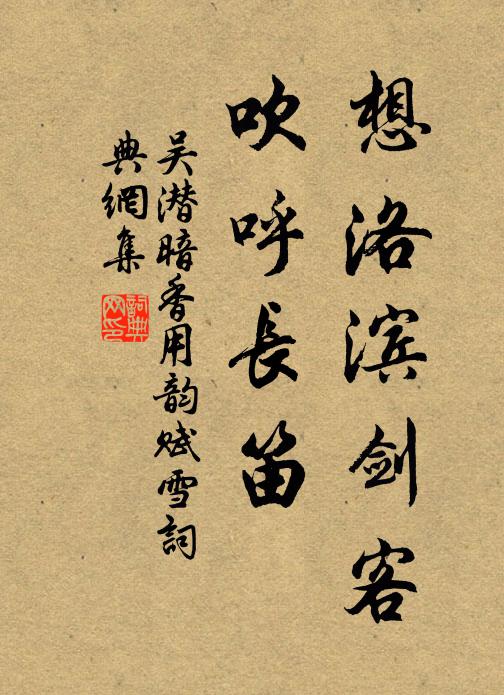 想洛滨剑客
吹呼长笛
吴潜暗香用韵赋雪词
典網集
詞典
网印